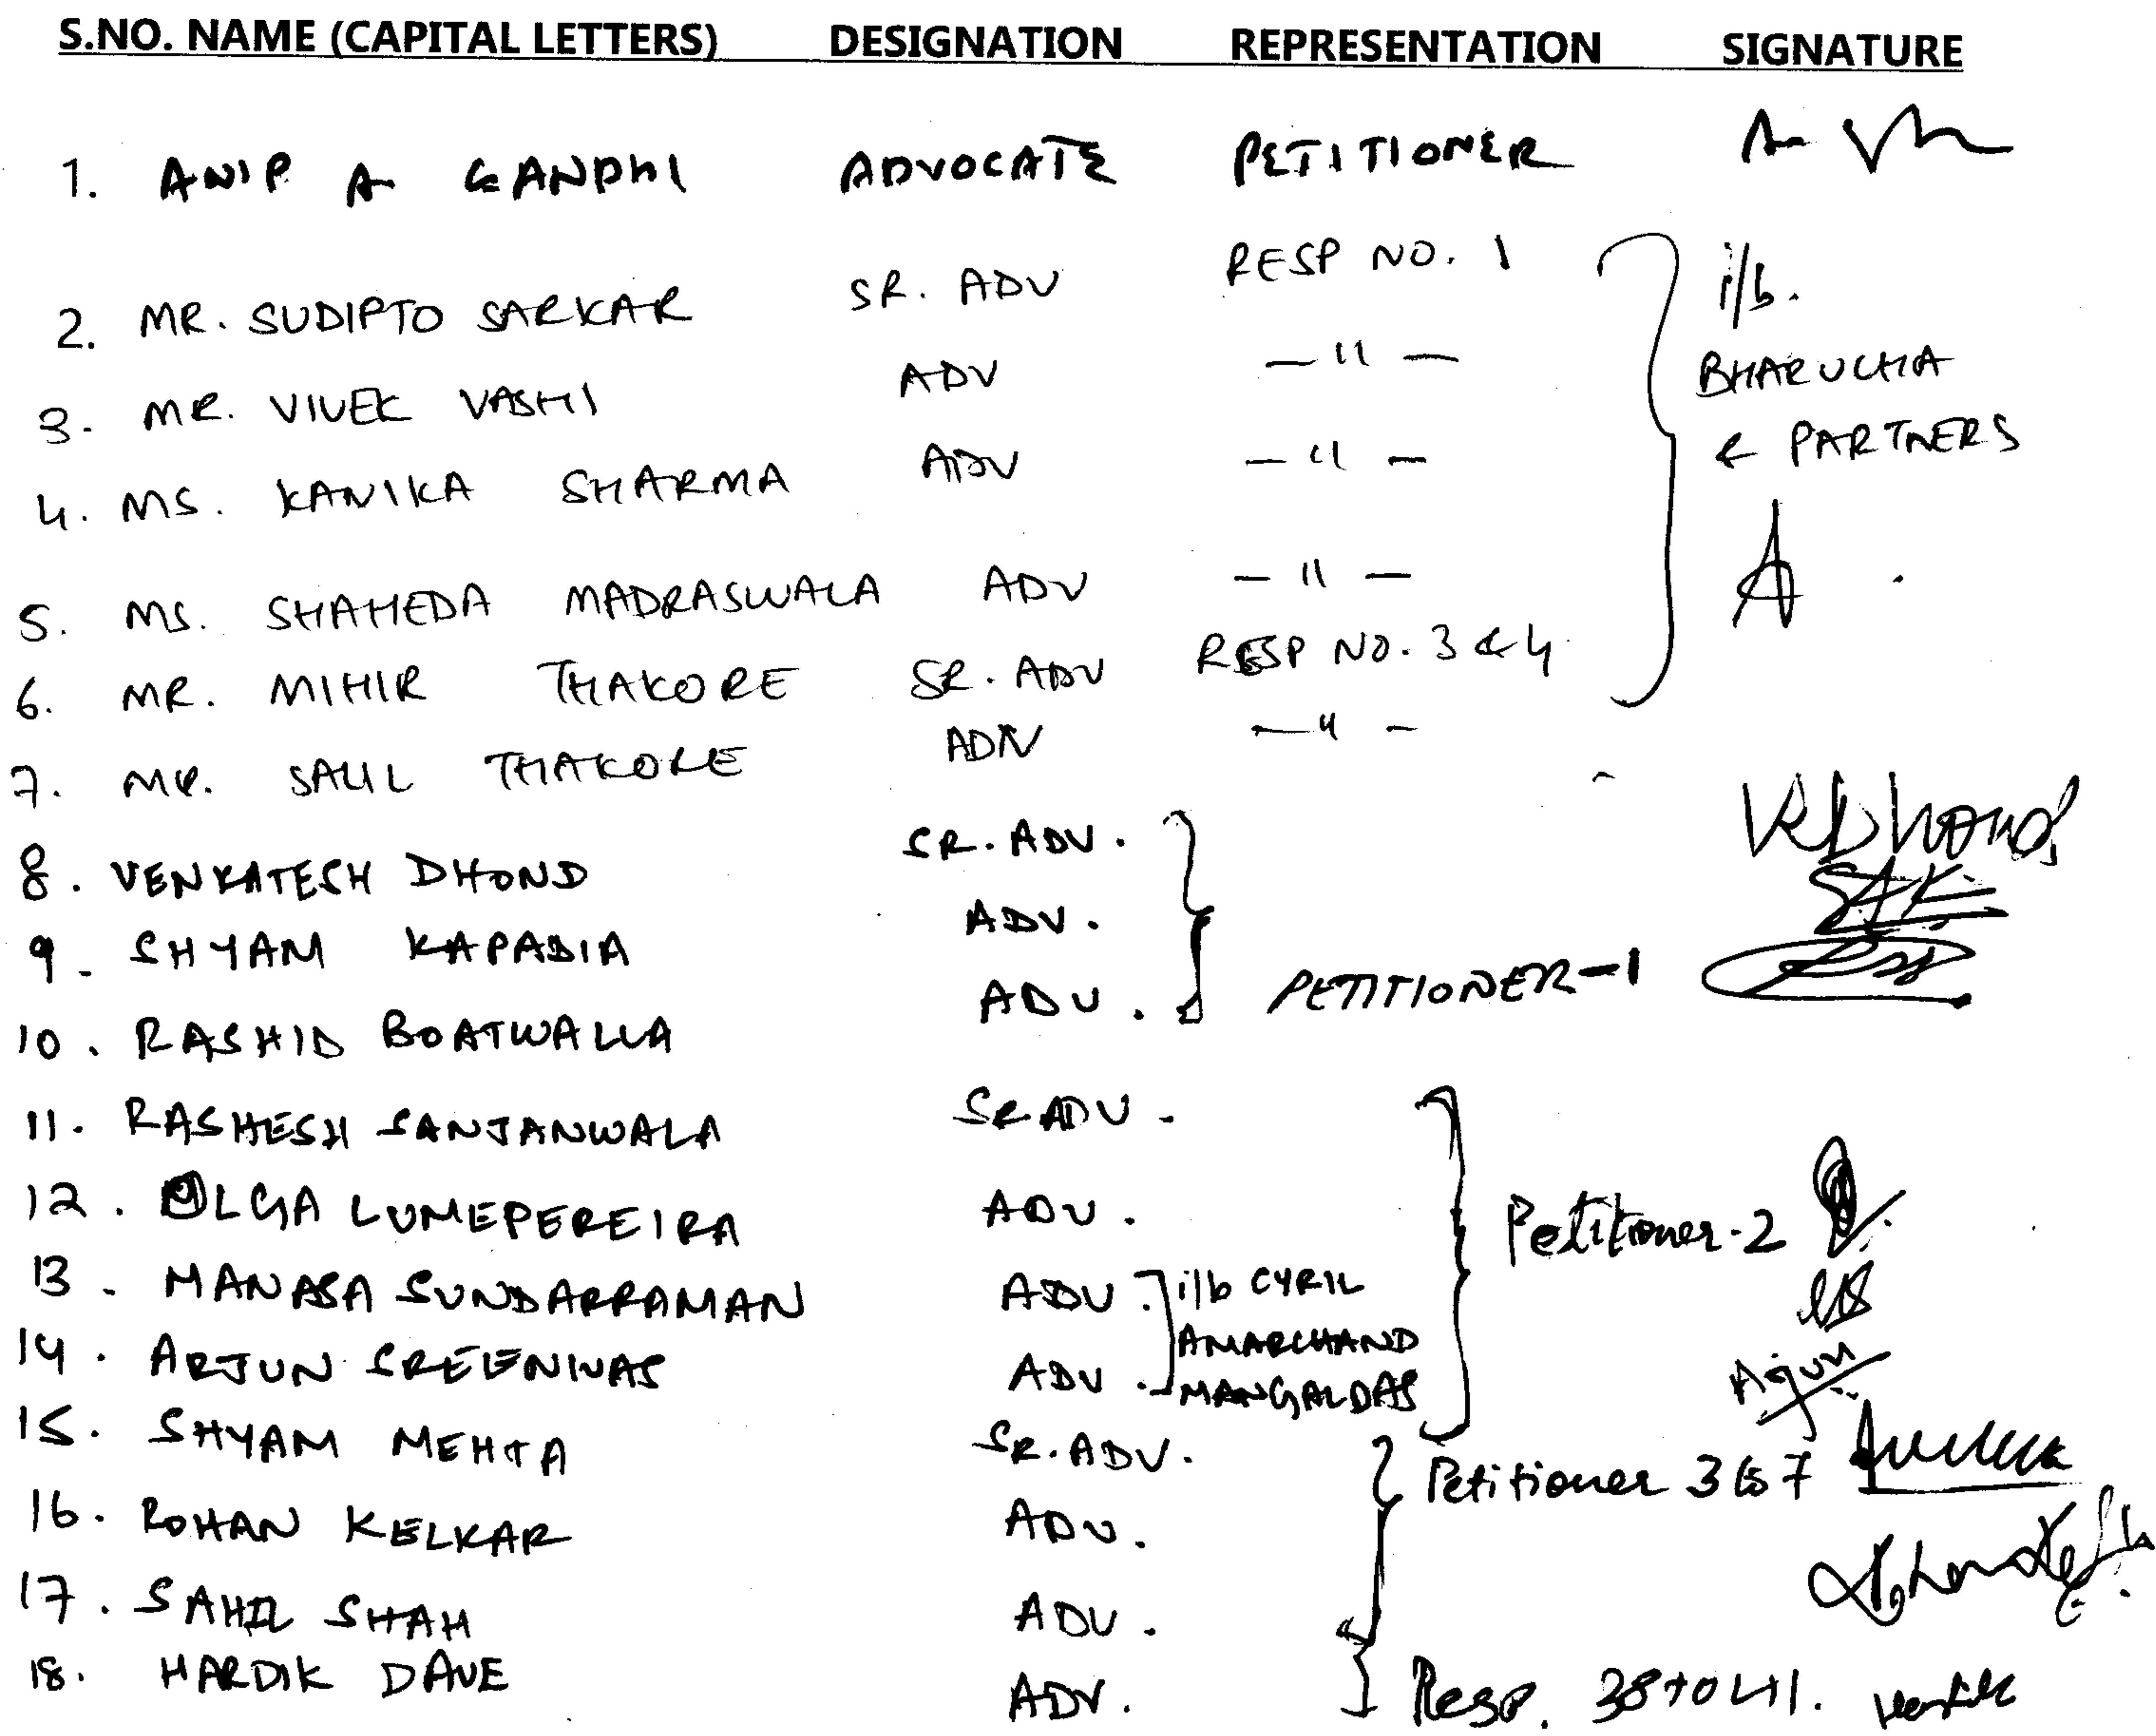 S.NO. NAME (CAPITAL LETTERS) DESIGNATION REPRESENTATION SIGNATURE
1. ANIP A GANDHI ADVOCATE PETITIONER
2. MR. SUDIPTO SARKAR SR. ADV RESP NO. 1 i/b.
3. MR. VIVEK VASHI ADV —"— BHARUCHA
4. MS. KANIKA SHARMA ADV —"— & PARTNERS
5. MS. SHAHEDA MADRASWALA ADV —"—
6. MR. MIHIR THAKORE SR. ADV RESP NO. 3 & 4
7. MR. SALIL THAKORE ADV —"—
8. VENKATESH DHOND SR. ADV.
9. SHYAM KAPADIA ADV.
10. RASHID BOATWALLA ADV. PETITIONER-1
11. RASHESH SANJANWALA SR ADV.
12. OLGA LUMEPEREIRA ADV. Petitioner-2
13. MANASA SUNDARRAMAN ADV. i/b CYRIL
AMARCHAND
14. ARJUN SREENIVAS ADV. MANGALDAS Arjun
15. SHYAM MEHTA SR. ADV. Petitioner 3 to 7
16. ROHAN KELKAR ADV.
17. SAHIL SHAH ADV.
18. HARDIK DAVE ADV. Resp. 38 to 41.